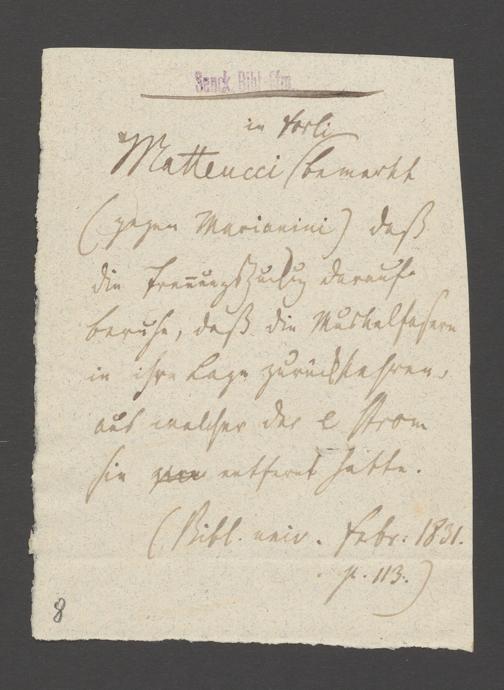 Senck. Bibl. Ffm.
in Forli
Matteucci bemerkt
(gegen Marianini) daß
die Trennungszuckg darauf
beruhe, daß die Muskelfasern
in ihre Lage zurückkehren,
aus welcher der e Strom
sie entfernt hatte.
(Bibl. univ. Febr: 1831.
p. 113.)
8